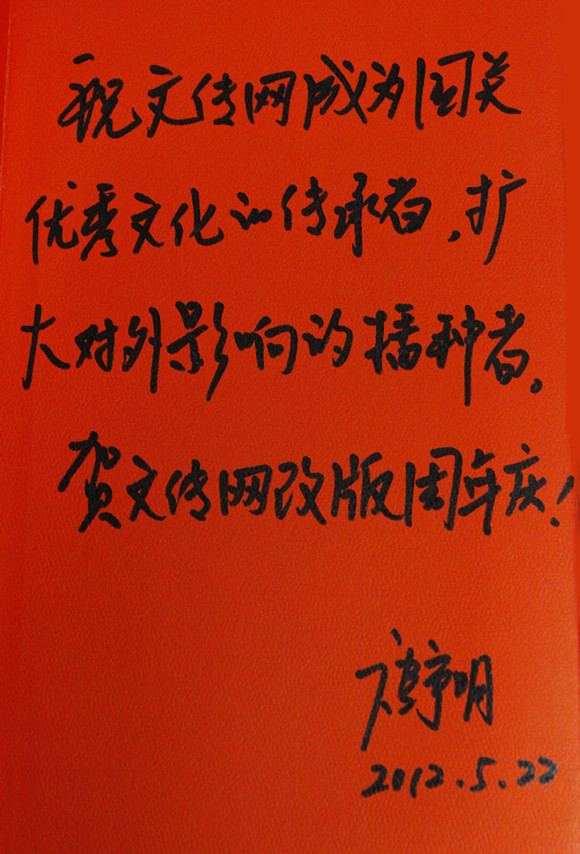 祝文传网成为国关
优秀文化的传承者，扩
大对外影响的播种者。
贺文传网改版周年庆！
2012.5.22